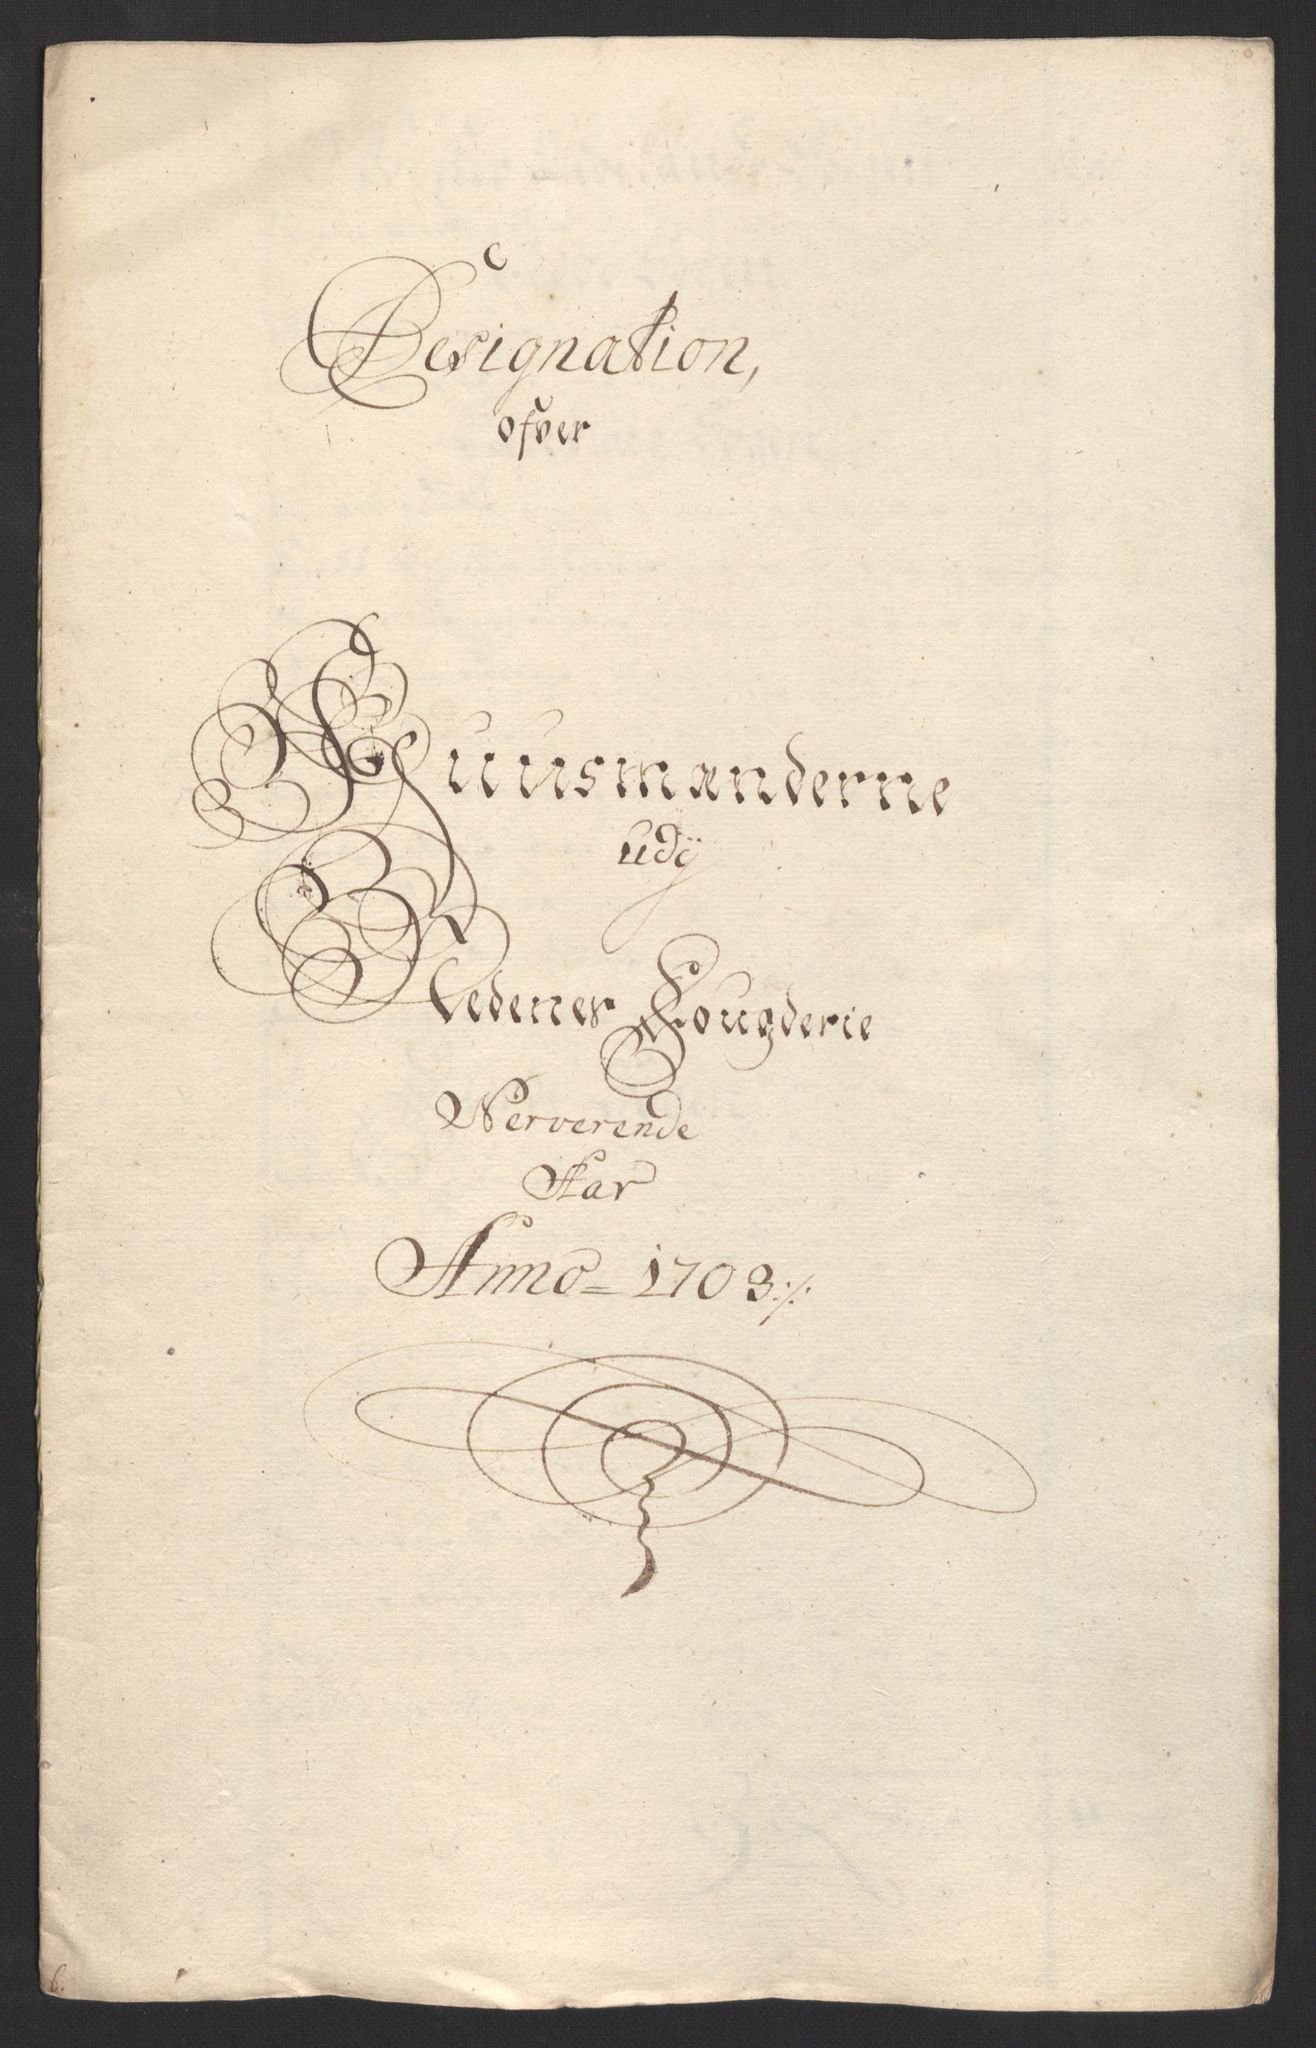 Designation,
ofver
Huusmænderne
udÿ
Nedenes Fougderie
Nerverende
Aar
Anno = 1703 ⁒
6.